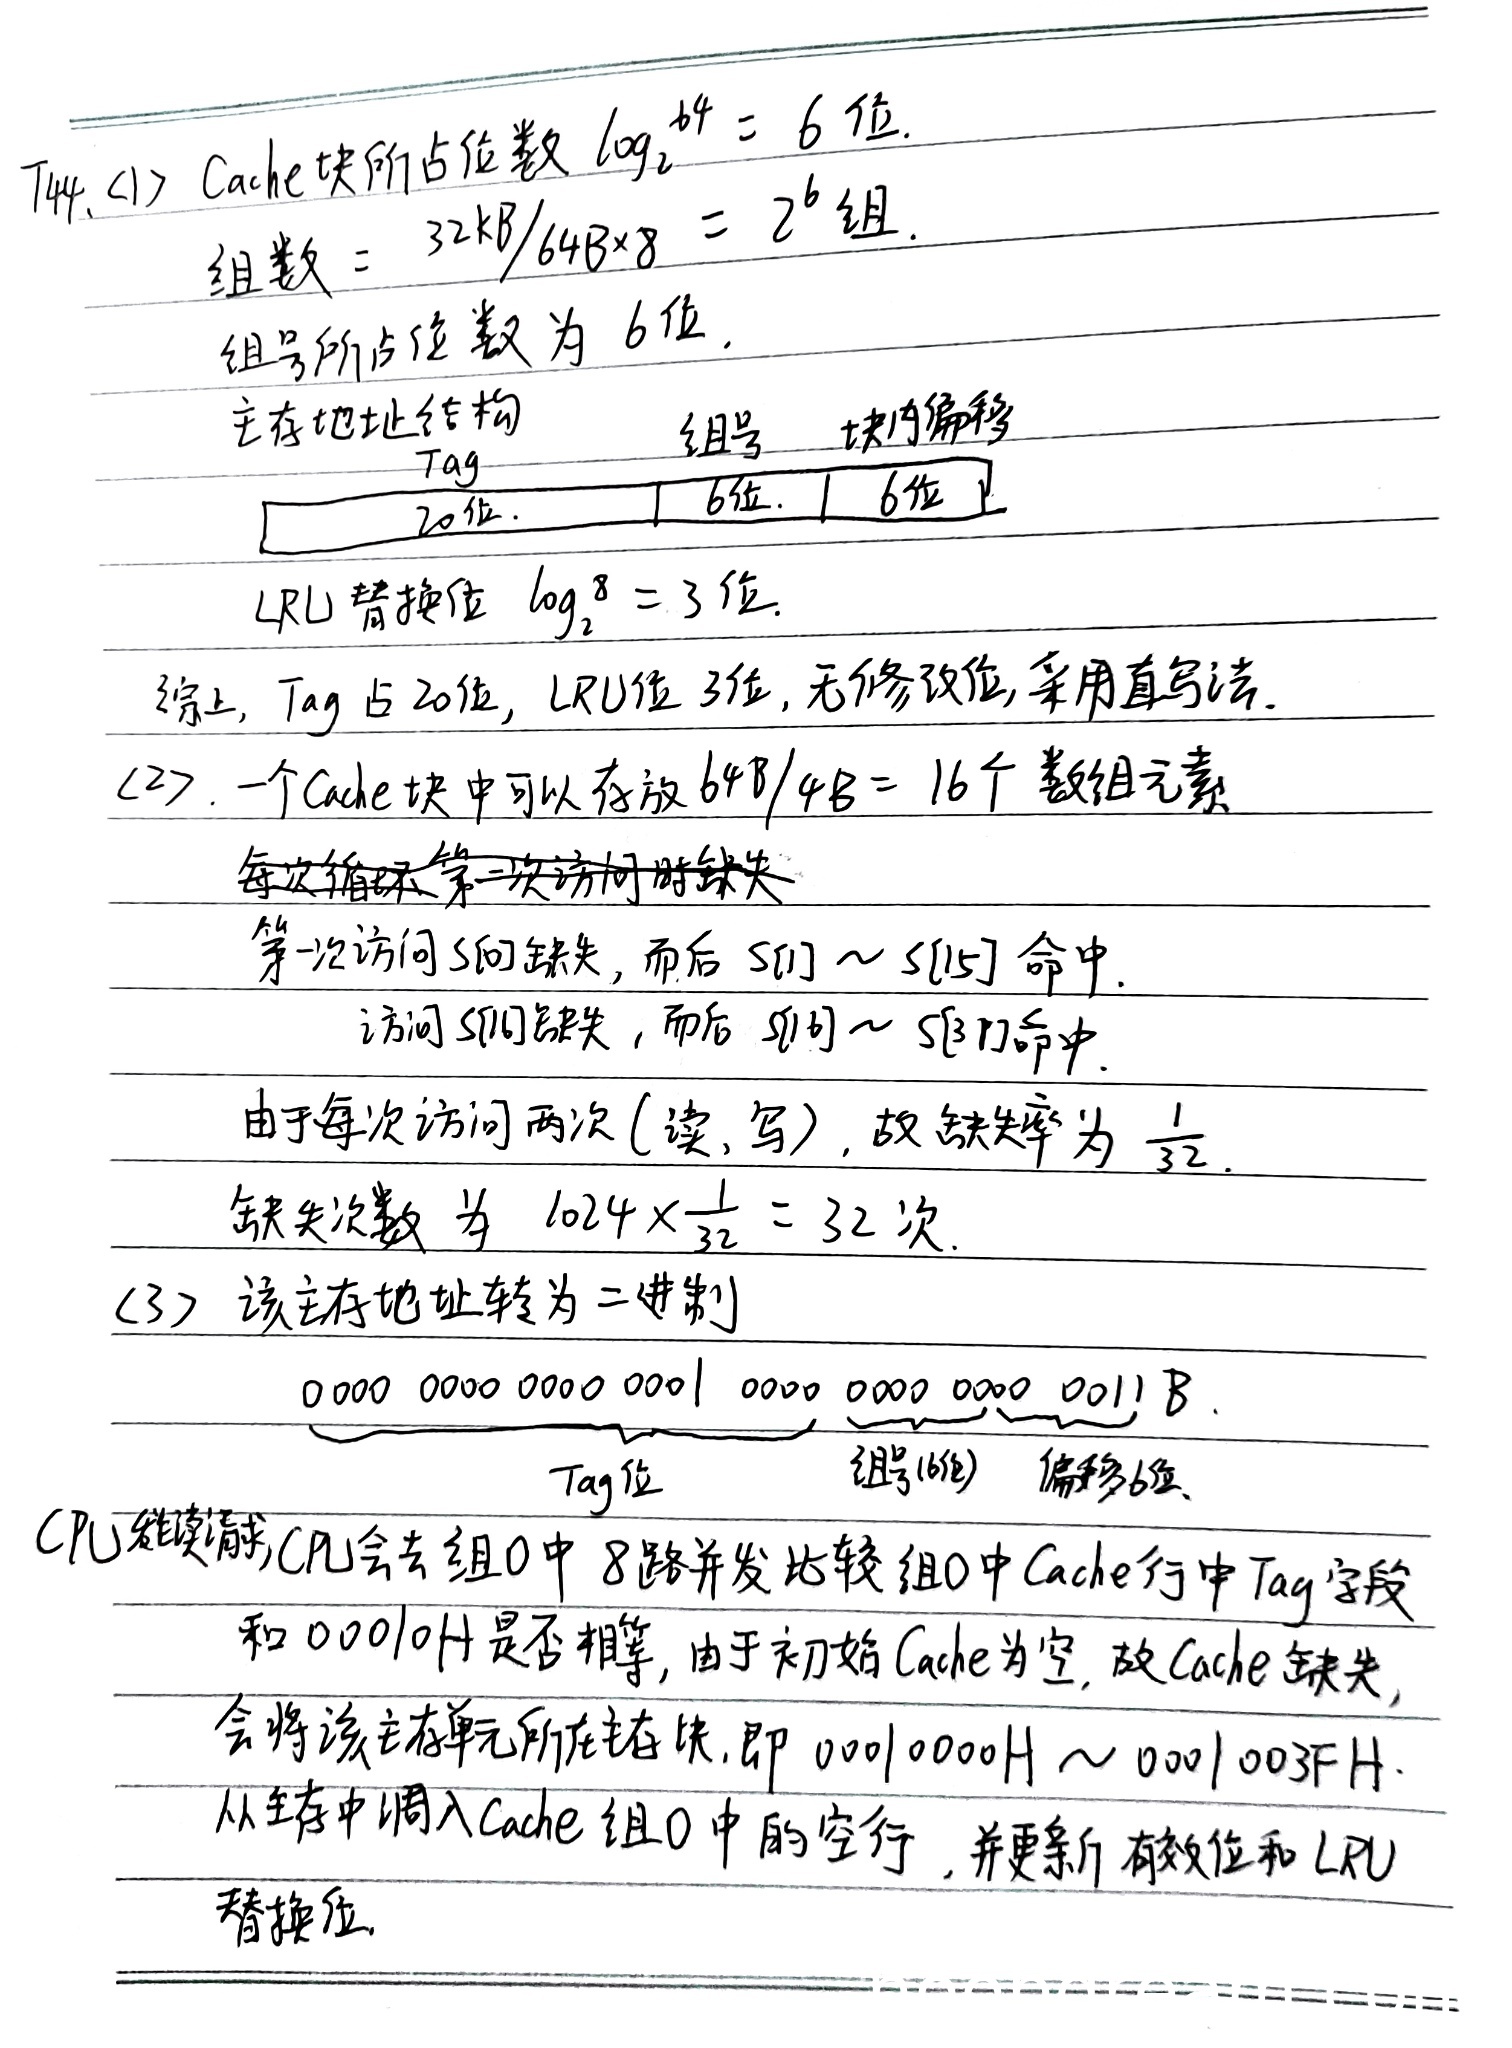 T44.<1> Cache块所占位数 log₂⁶⁴ = 6位.
组数 = 32KB/64B×8 = 2⁶组.
组号所占位数为 6位.
主存地址结构
Tag 组号 块内偏移
20位. 6位. 6位
LRU替换位 log₂⁸ = 3位.
综上, Tag占20位, LRU位 3位, 无修改位, 采用直写法.
<2>. 一个Cache块中可以存放64B/4B = 16个 数组元素
每次循环第一次访问时缺失
第一次访问S[0]缺失, 而后 S[1] ~ S[15] 命中.
访问S[16]缺失, 而后 S[16] ~ S[31]命中.
由于每次访问两次(读、写), 故缺失率为 1/32.
缺失次数为 1024 × 1/32 = 32次.
<3> 该主存地址转为二进制
0000 0000 0000 0001 0000 0000 0000 0011 B.
Tag位 组号(6位) 偏移6位.
CPU发读请求, CPU会去组0中 8路并发比较组0中Cache行中Tag字段
和00010H是否相等, 由于初始Cache为空, 故Cache缺失,
会将该主存单元所在主存块, 即 00010000H ~ 0001003FH.
从主存中调入Cache组0中的空行, 并更新有效位和LRU
替换位.